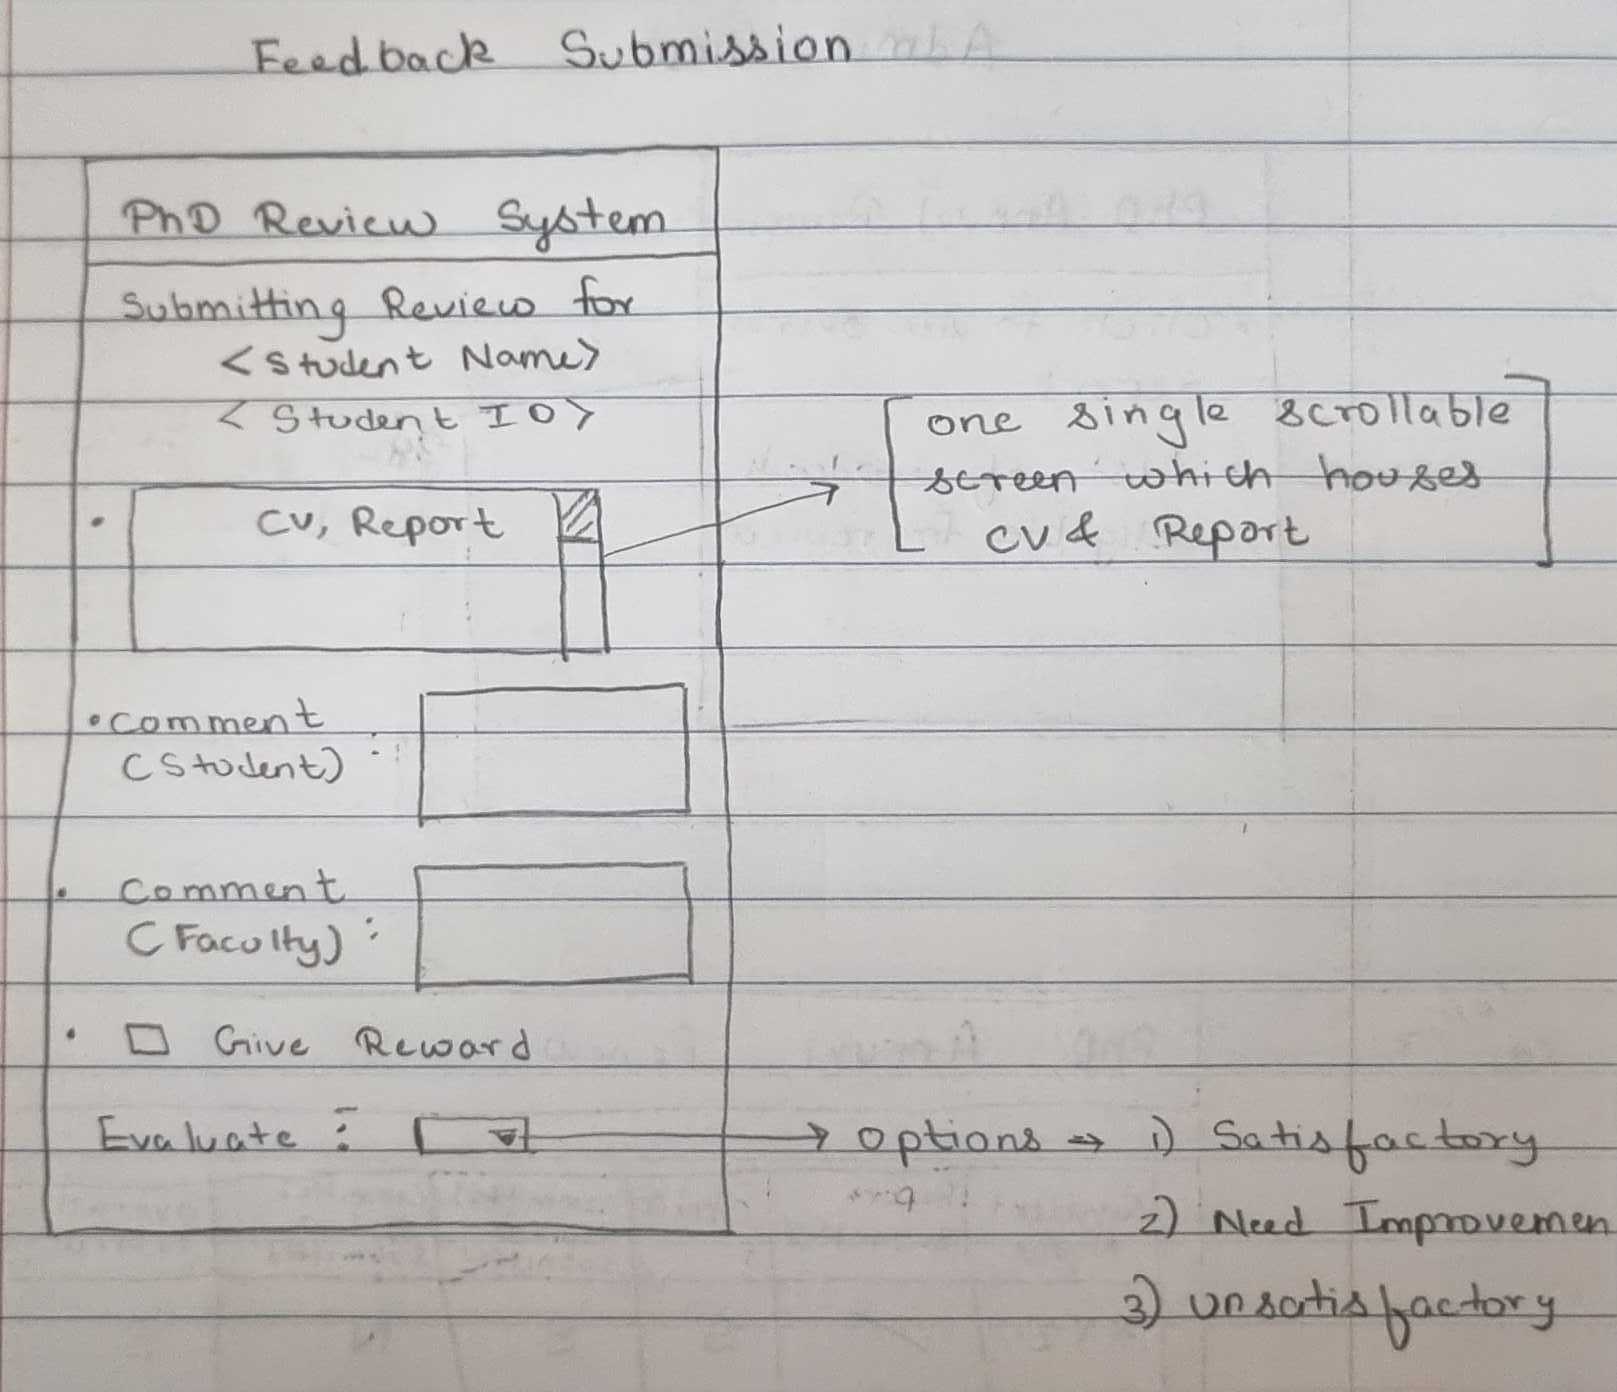 Feedback Submission
PhD Review System
Submitting Review for
<Student Name>
<Student ID>
• CV, Report
one single scrollable
screen which houses
CV & Report
• Comment
(Student) :
• Comment
(Faculty) :
• Give Reward
Evaluate : → options → 1) Satisfactory
2) Need Improvemen
3) Unsatisfactory